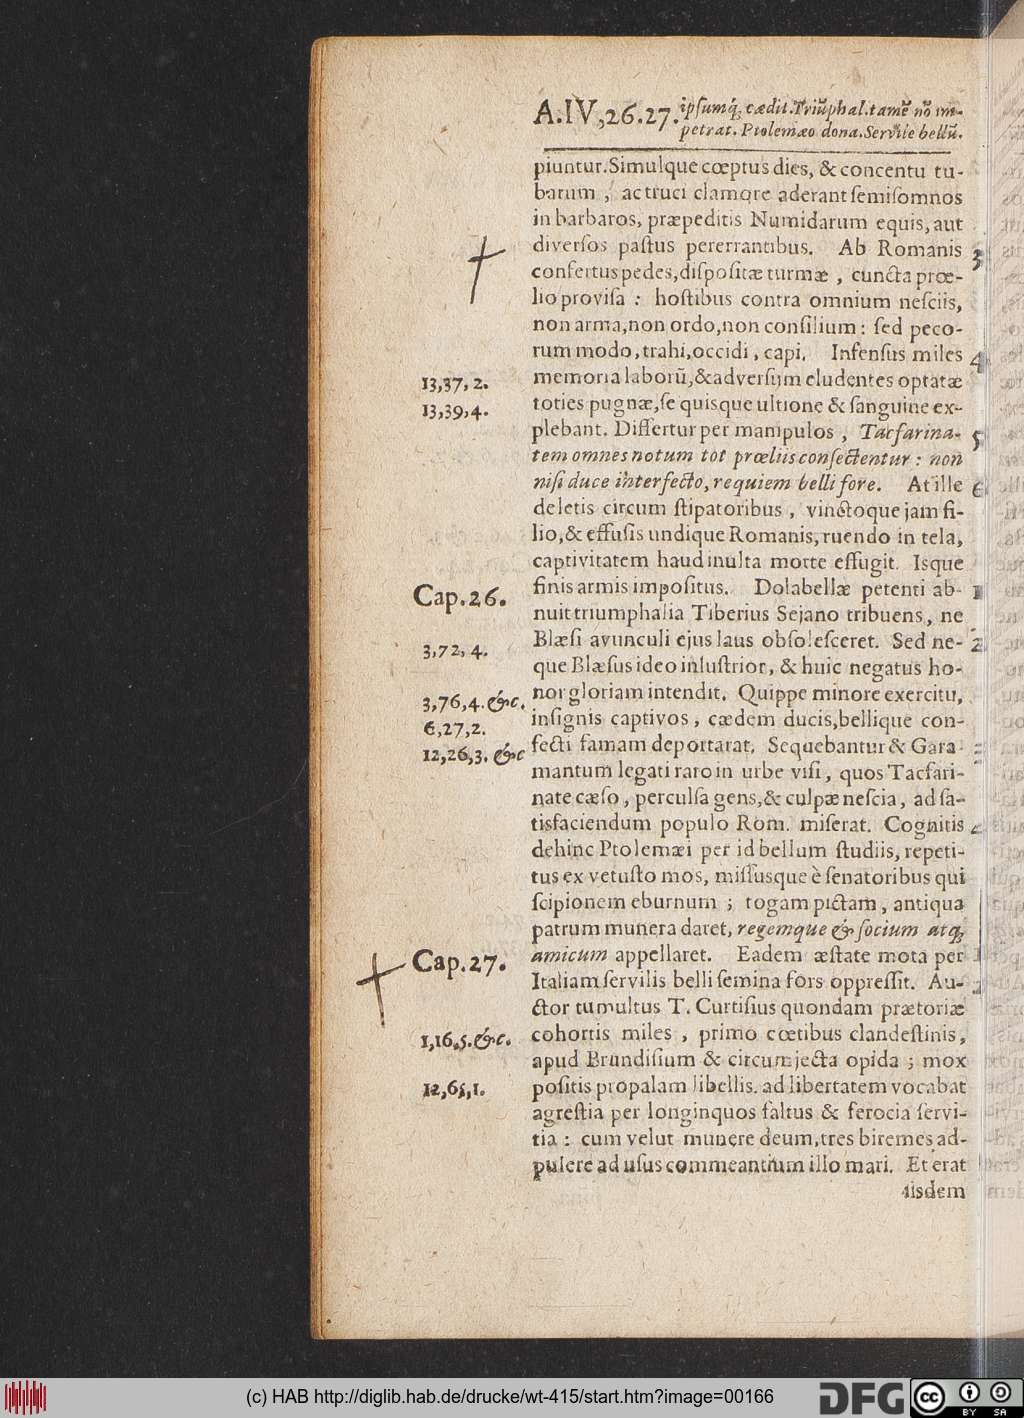 A.IV,26.27. ipsumq́; cædit. Triũphal. tamẽ nõ im-
petrat. Ptolemæo dona. Servile bellũ.
piuntur. Simulque cœptus dies, & concentu tu-
barum, ac truci clamore aderant semisomnos
in barbaros, præpeditis Numidarum equis, aut
diversos pastus pererrantibus. Ab Romanis 3
confertus pedes, dispositæ turmæ, cuncta prœ-
lio provisa: hostibus contra omnium nesciis,
non arma, non ordo, non consilium: sed peco-
rum modo, trahi, occidi, capi. Infensus miles 4
13,37,2. memoria laborũ, & adversum eludentes optatæ
13,39,4. toties pugnæ, se quisque ultione & sanguine ex-
plebant. Differtur per manipulos, Tacfarina- 5
tem omnes notum tot prœliis consectentur: non
nisi duce interfecto, requiem belli fore. At ille 6
deletis circum stipatoribus, vinctoque jam fi-
lio, & effusis undique Romanis, ruendo in tela,
captivitatem haud inulta morte effugit. Isque
Cap.26. finis armis impositus. Dolabellæ petenti ab- 1
nuit triumphalia Tiberius Sejano tribuens, ne
3,72,4. Blæsi avunculi ejus laus obsolesceret. Sed ne- 2
que Blæsus ideo inlustrior, & huic negatus ho-
3,76,4. &c. nor gloriam intendit. Quippe minore exercitu,
6,27,2. insignis captivos, cædem ducis, bellique con-
12,26,3. &c fecti famam deportarat. Sequebantur & Gara- 3
mantum legati raro in urbe visi, quos Tacfari-
nate cæso, perculsa gens, & culpæ nescia, ad sa-
tisfaciendum populo Rom. miserat. Cognitis 4
dehinc Ptolemæi per id bellum studiis, repeti-
tus ex vetusto mos, missusque è senatoribus qui
scipionem eburnum; togam pictam, antiqua
patrum munera daret, regemque & socium atq;
Cap.27. amicum appellaret. Eadem æstate mota per 1
Italiam servilis belli semina fors oppressit. Au- 2
ctor tumultus T. Curtisius quondam prætoriæ
1,16,5. &c. cohortis miles, primo cœtibus clandestinis,
apud Brundisium & circumjecta opida; mox
12,65,1. positis propalam libellis. ad libertatem vocabat
agrestia per longinquos saltus & ferocia servi-
tia: cum velut munere deum, tres biremes ad-
pulere ad usus commeantium illo mari. Et erat
iisdem
(c) HAB http://diglib.hab.de/drucke/wt-415/start.htm?image=00166
DFG
cc
BY SA